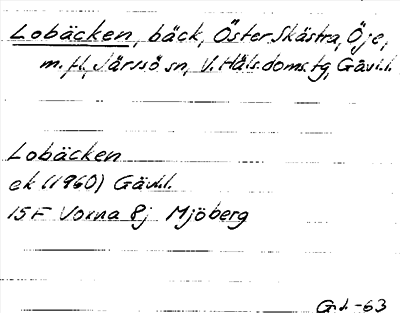 Lobäcken, bäck, Öster Skästra, Öje,
m. fl., Järvsö sn, V. Häls. doms. tg, Gävl.l.
Lobäcken
ek (1960) Gävl.l.
15F Voxna 8j Mjöberg
G.J. -63